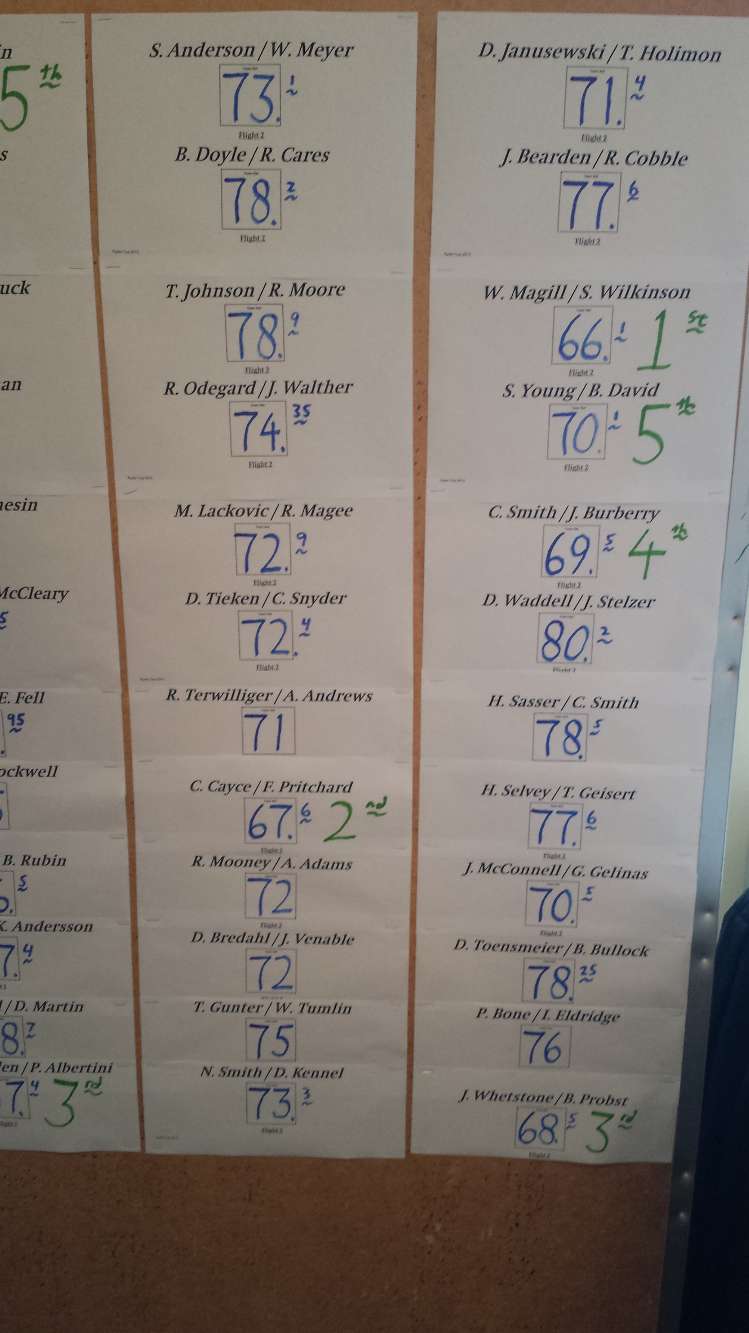 in
5 th
s
uck
an
nesin
McCleary
5
E. Fell
.95
ockwell
B. Rubin
5
K. Andersson
7.4
/D. Martin
8.2
en/P. Albertini
7.4 3 rd
S. Anderson/W. Meyer
73.1
Flight 2
B. Doyle/R. Cares
78.2
Flight 2
T. Johnson/R. Moore
78.9
Flight 2
R. Odegard/J. Walther
74.35
Flight 2
M. Lackovic/R. Magee
72.9
Flight 2
D. Tieken/C. Snyder
72.4
Flight 2
R. Terwilliger/A. Andrews
71
C. Cayce/F. Pritchard
67.6 2 nd
Flight 2
R. Mooney/A. Adams
72
Flight 2
D. Bredahl/J. Venable
72
T. Gunter/W. Tumlin
75
N. Smith/D. Kennel
73.3
Flight 2
D. Janusewski/T. Holimon
71.4
Flight 2
J. Bearden/R. Cobble
77.6
Flight 2
W. Magill/S. Wilkinson
66.1 1 st
Flight 2
S. Young/B. David
70.1 5 th
Flight 2
C. Smith/J. Burberry
69.5 4 th
Flight 2
D. Waddell/J. Stelzer
80.2
Flight 2
H. Sasser/C. Smith
78.5
Flight 2
H. Selvey/T. Geisert
77.6
Flight 2
J. McConnell/G. Gelinas
70.5
Flight 2
D. Toensmeier/B. Bullock
78.25
Flight 2
P. Bone/I. Eldridge
76
J. Whetstone/B. Probst
68.5 3 rd
Flight 2